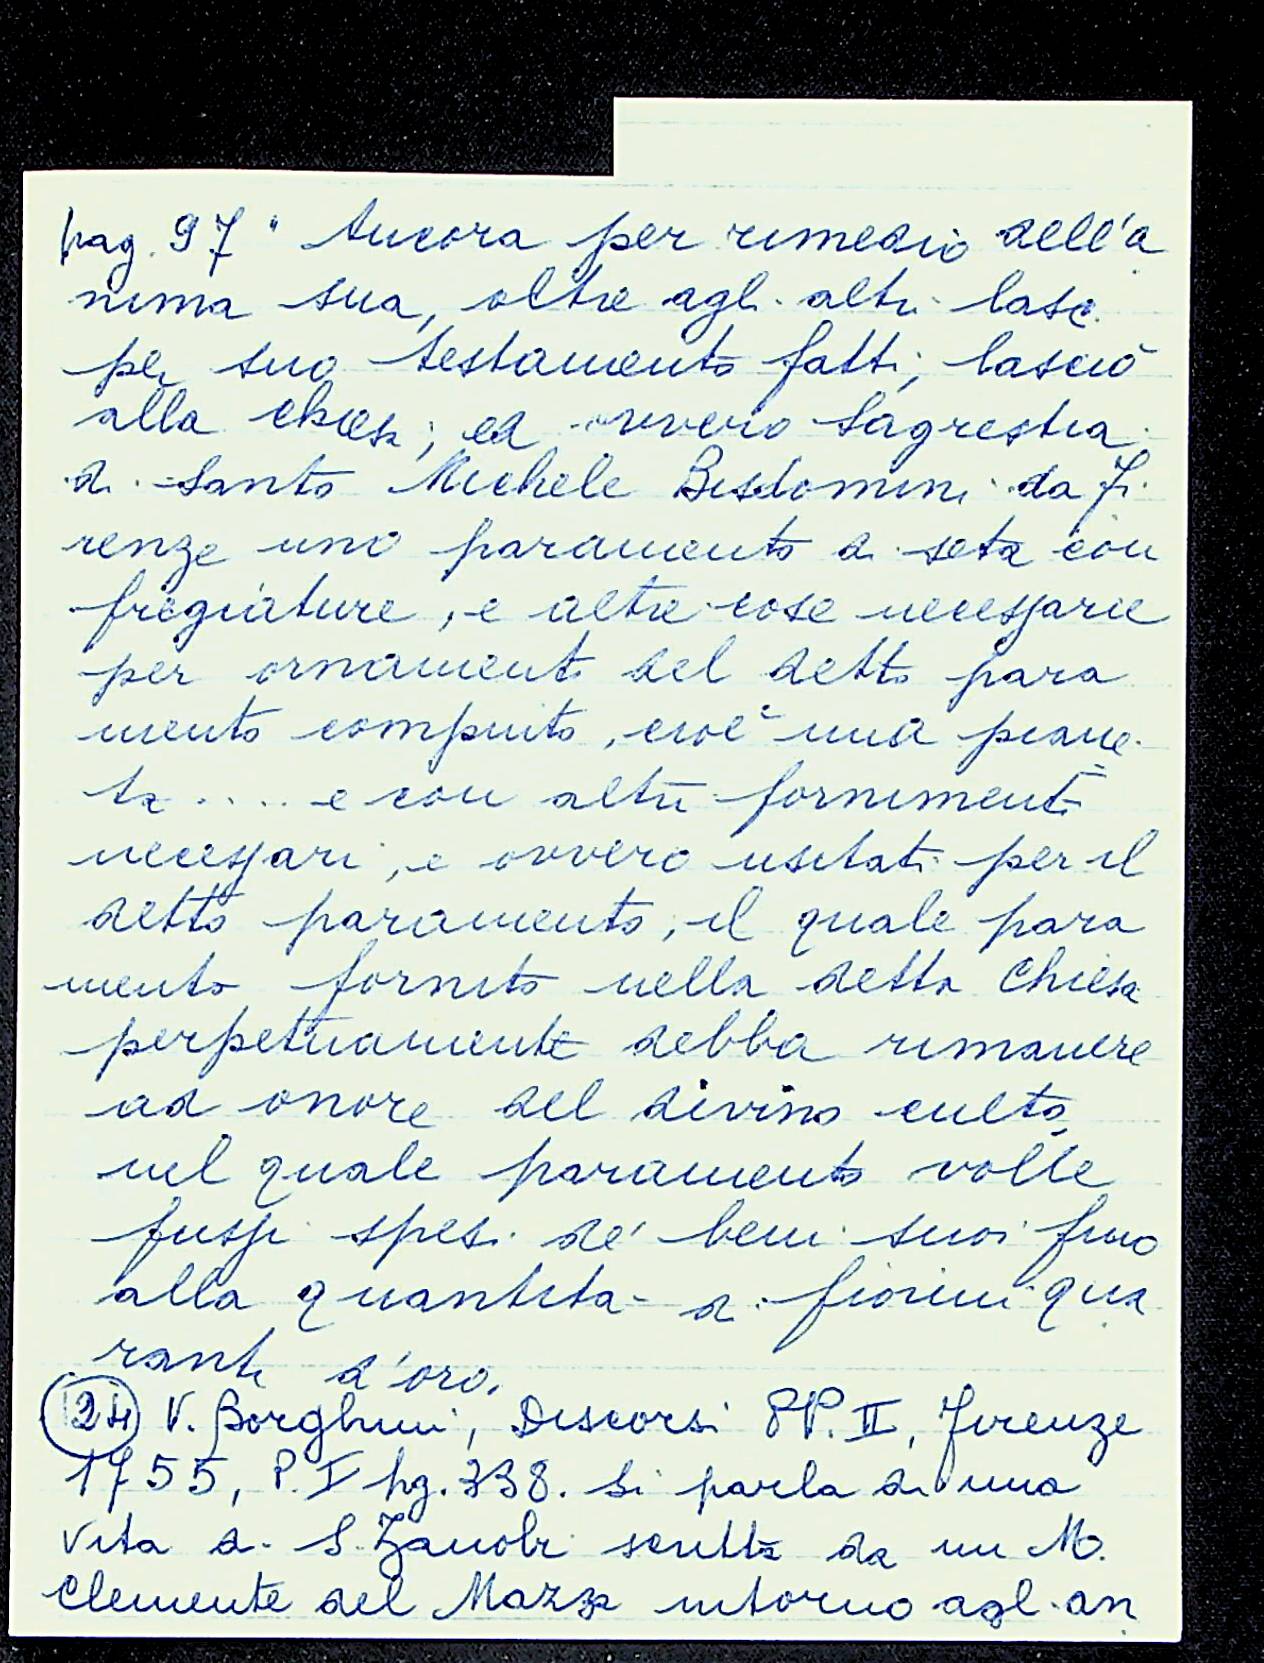 pag. 97 " Ancora per rimedio dell'a
nima sua, oltre agli altri lasci
per suo testamento fatti, lasciò
alla chiesa, ed ovvero Sagrestia
di Santo Michele Bisdomini da Fi
renze uno paramento di seta con
fregiature, e altre cose necessarie
per ornamento del detto para
mento compiuto, cioè una piane-
ta .... e con altri fornimenti
necessari, e ovvero usitati per il
detto paramento, il quale para
mento fornito nella detta Chiesa
perpetuamente debba rimanere
ad onore del divino culto,
nel quale paramento volle
fussi spesi de' beni suoi fino
alla quantità di fiorini qua
ranta d'oro.
(24) V. Borghini, Discorsi PP. II, Firenze
1755, P. I pg. 338. Si parla di una
vita di S. Zanobi scritta da un M.
Clemente del Mazza intorno agli an